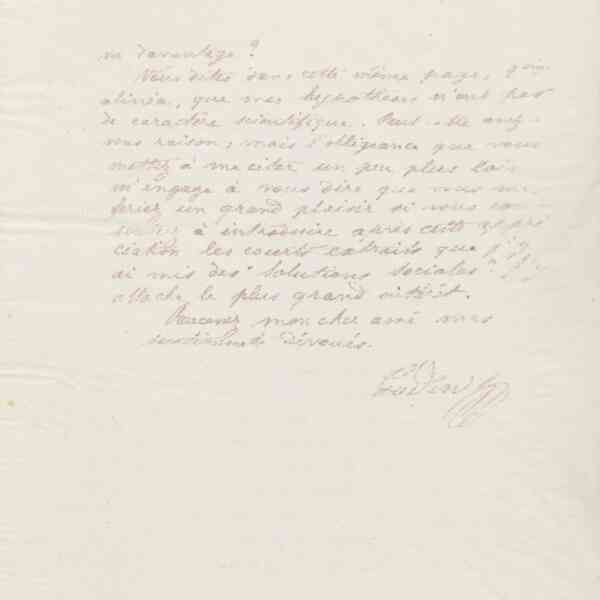 ni davantage ?
Vous dites dans cette même page,
alinéa, que mes hypothèses n'ont pas
de caractère scientifique. Peut-être avez
vous raison ; mais l'obligeance que vous
mettez à me citer un peu plus loin
m'engage à vous dire que vous me
feriez un grand plaisir si vous
à introduire après cette appré
ciation les courts extraits que j'y
ai mis des "Solutions sociales" j'y
attache le plus grand intérêt.
Recevez mon cher ami mes
sentiments dévoués.
Godin